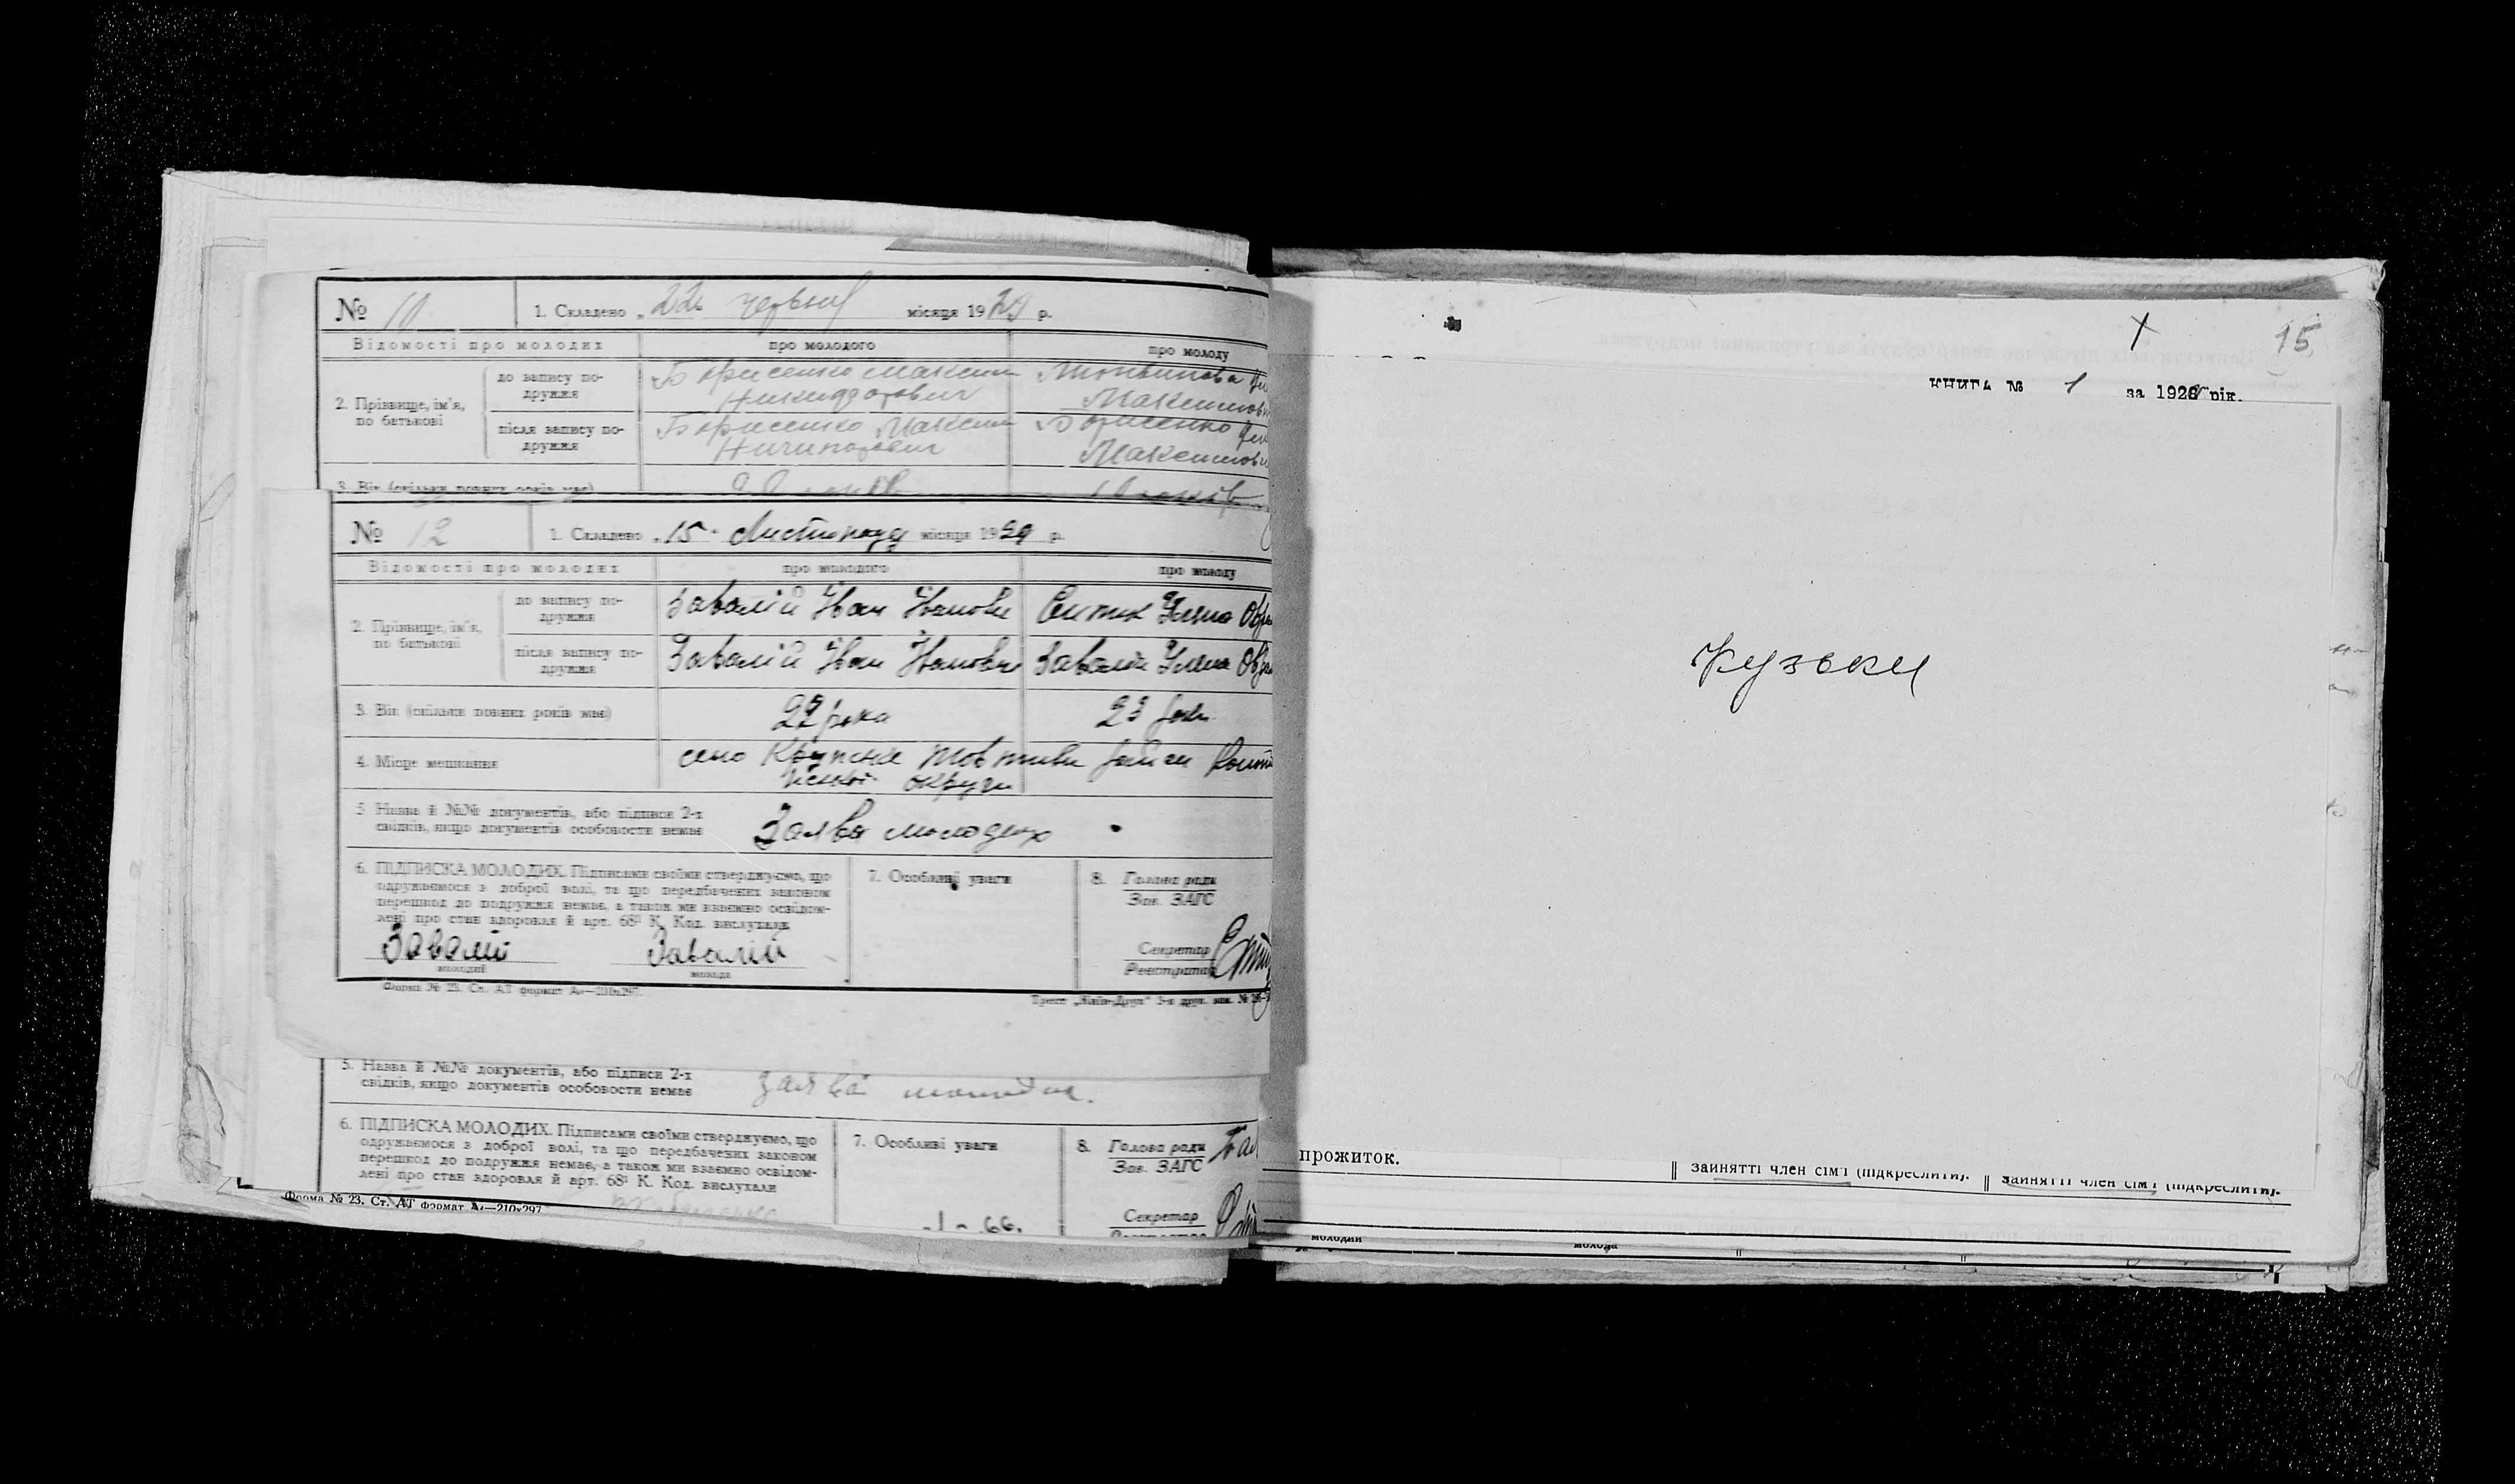 № 10
1. Складено „ 22 червня місяця 1929 р.
Відомості про молодих
про молодого
про молоду
2. Прізвище, ім'я, по батькові
до запису подружжя
Борисенко Максим
Никифорович
Литвинова
Максимов
після запису подружжя
Борисенко Максим
Ничипорович
Борисенко
Максимов
3. Вік (скільки повних років має)
№ 12
1. Складено „ 15 " Листопаду місяця 1929 р.
Відомості про молодих
про молодого
про молоду
2. Прізвище, ім'я,
по батькові
до запису по-
дружжя
Завалій Іван Іванови
Уляна
після запису по-
дружжя
Завалій Іван Іванович
Завалій Уляна
3. Вік (скільки повних років має)
22 рока
23 роки
4. Місце мешкання
село
округи
5 Назва й №№ документів, або підписи 2-х
свідків, якщо документів особовости немає
Заява молодих
6. ПІДПИСКА МОЛОДИХ. Підписами своїми стверджуємо, що
одружаємося з доброї волі, та що передбачених законом
перешкод до подружжя немає, а також ми взаємно освідом-
лені про стан здоров'я й арт. 68¹ К. Код. вислухали
Завалій
молодий
Завалій
молода
7. Особливі уваги
8. Голова ради
Зав. ЗАГС
Секретар
Реєстратор
Форма № 23. Ст. АТ формат А₄—210x297.
Трест „Київ-Друк" 3-я друк. зам. №
5. Назва й №№ документів, або підписи 2-х
свідків, якщо документів особовости немає
заява молодих.
6. ПІДПИСКА МОЛОДИХ. Підписами своїми стверджуємо, що
одружаємося з доброї волі, та що передбачених законом
перешкод до подружжя немає, а також ми взаємно освідом-
лені про стан здоров'я й арт. 68¹ К. Код. вислухали
7. Особливі уваги
8. Голова ради
Зав. ЗАГС
Секретар
Форма № 23. Ст. АТ формат А₄—210x297
15
КНИГА № 1 за 1928 рік.
Кузьки
прожиток.
зайнятті член сім'ї (підкреслити).
зайнятті член сім'ї (підкреслити).
молодий
молода